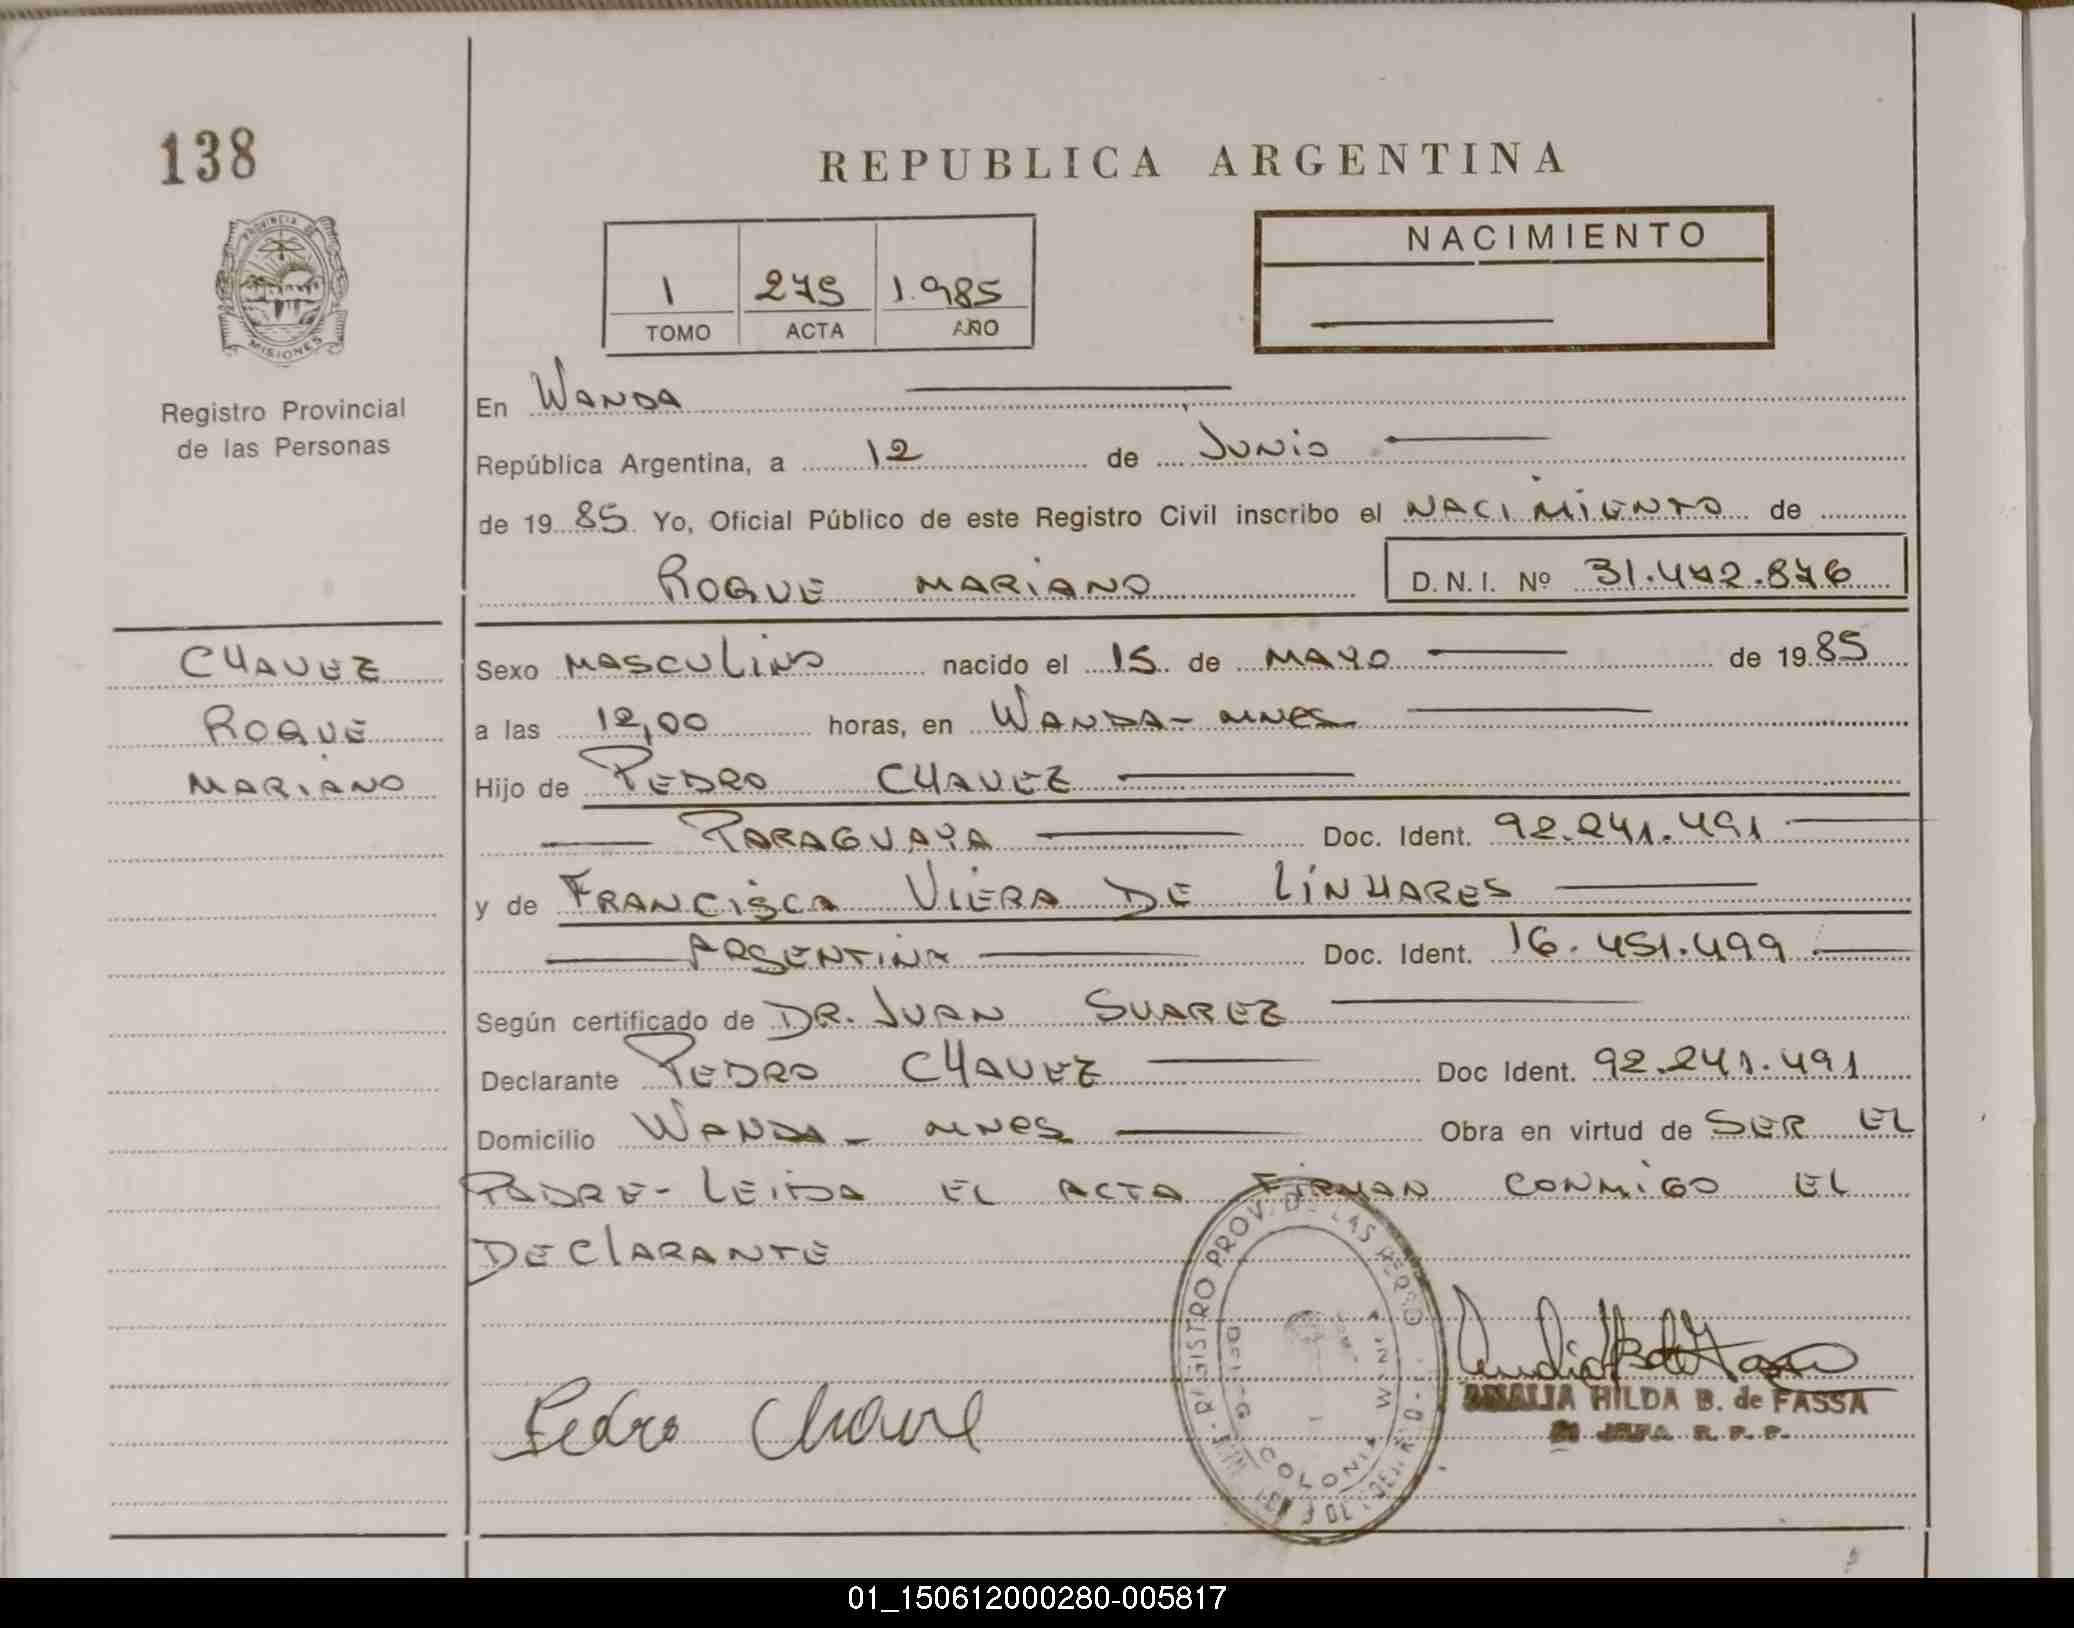 138
REPUBLICA ARGENTINA
PROVINCIA DE
MISIONES
Registro Provincial
de las Personas
1 275 1.985
TOMO ACTA AÑO
NACIMIENTO
En WANDA
República Argentina, a 12 de JUNIO
de 19 85 Yo, Oficial Público de este Registro Civil inscribo el NACIMIENTO de
ROQUE MARIANO D.N.I. Nº 31.472.876
CHAVEZ
ROQUE
MARIANO
Sexo MASCULINO nacido el 15 de MAYO de 19 85
a las 12,00 horas, en WANDA - MNES
Hijo de PEDRO CHAVEZ
PARAGUAYA Doc. Ident. 92.241.491
y de FRANCISCA VIERA DE LINHARES
ARGENTINA Doc. Ident. 16.451.499
Según certificado de DR. JUAN SUAREZ
Declarante PEDRO CHAVEZ Doc Ident. 92.241.491
Domicilio WANDA - MNES Obra en virtud de SER EL
PADRE - LEIDA EL ACTA FIRMAN CONMIGO EL
DECLARANTE
REGISTRO PROV. DE LAS PERSO
DELEG COLONIA WANDA
Pedro Chavez
AMALIA HILDA B. de FASSA
JEFA R. P. P.
01_150612000280-005817